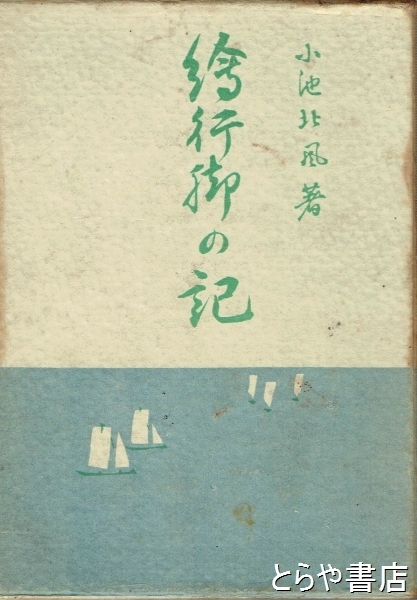 小池北風著
繪行脚の記
とらや書店